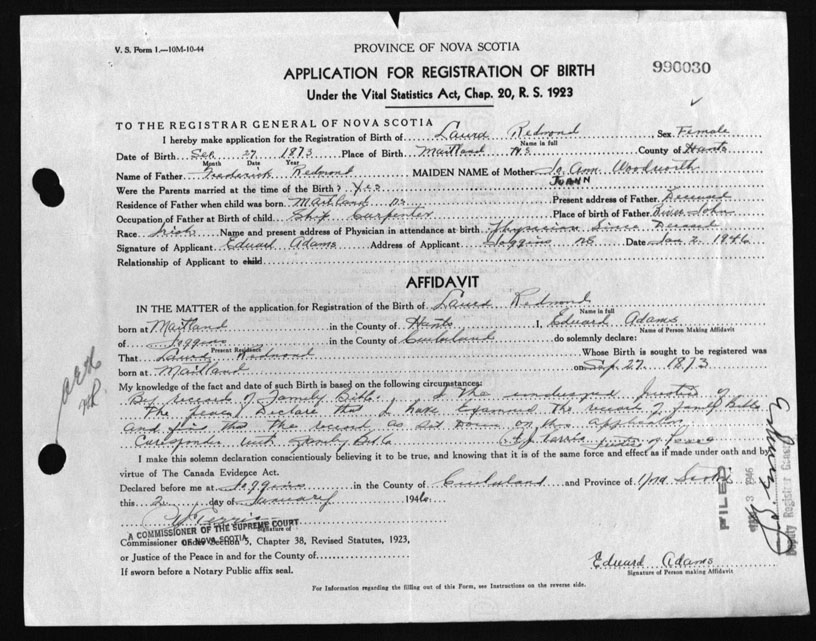 V. S. Form 1.—10M-10-44
PROVINCE OF NOVA SCOTIA
APPLICATION FOR REGISTRATION OF BIRTH
990030
Under the Vital Statistics Act, Chap. 20, R. S. 1923
TO THE REGISTRAR GENERAL OF NOVA SCOTIA
I hereby make application for the Registration of Birth of Laura Redmond Sex Female
Name in full
Date of Birth Sep 27 1873 Place of Birth Maitland NS County of Hants
Month Date Year
Name of Father Frederick Redmond MAIDEN NAME of Mother Jo Ann Woodworth
JOANN
Were the Parents married at the time of the Birth? Yes
Residence of Father when child was born Maitland NS Present address of Father Deceased
Occupation of Father at Birth of child Ship Carpenter Place of birth of Father John
Race Irish Name and present address of Physician in attendance at birth Physician Since Deceased
Signature of Applicant Eduard Adams Address of Applicant Joggins NS Date Jan 2 1946
Relationship of Applicant to child
AFFIDAVIT
IN THE MATTER of the application for Registration of the Birth of Laura Redmond
Name in full
born at Maitland in the County of Hants I, Eduard Adams
Name of Person Making Affidavit
of Joggins in the County of Cumberland do solemnly declare:
Present Residence
That Laura Redmond Whose Birth is sought to be registered was
born at Maitland on Sep. 27 1873
My knowledge of the fact and date of such Birth is based on the following circumstances:
By record of Family Bible, I the undersigned Justice of
The Peace, Declare that I have Examined The record in family Bible
and find that the record as set down on this application
Corresponds with Family Bible Justice of Peace
I make this solemn declaration conscientiously believing it to be true, and knowing that it is of the same force and effect as if made under oath and by
virtue of The Canada Evidence Act.
Declared before me at Joggins in the County of Cumberland and Province of Nova Scotia
this 2 day of January 1946
Signature of
A COMMISSIONER OF THE SUPREME COURT
OF NOVA SCOTIA
Commissioner under Section 5, Chapter 38, Revised Statutes, 1923,
or Justice of the Peace in and for the County of
If sworn before a Notary Public affix seal.
Eduard Adams
Signature of Person making Affidavit
For Information regarding the filling out of this Form, see Instructions on the reverse side.
FILED
3 1946
Deputy Registrar General